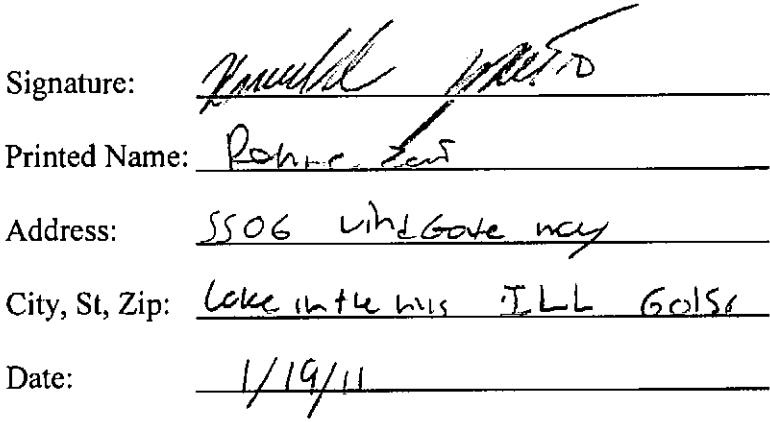 Signature:
Printed Name:
Address: 5506 WindGate way
City, St, Zip: Lake in the hills ILL 60156
Date: 1/19/11